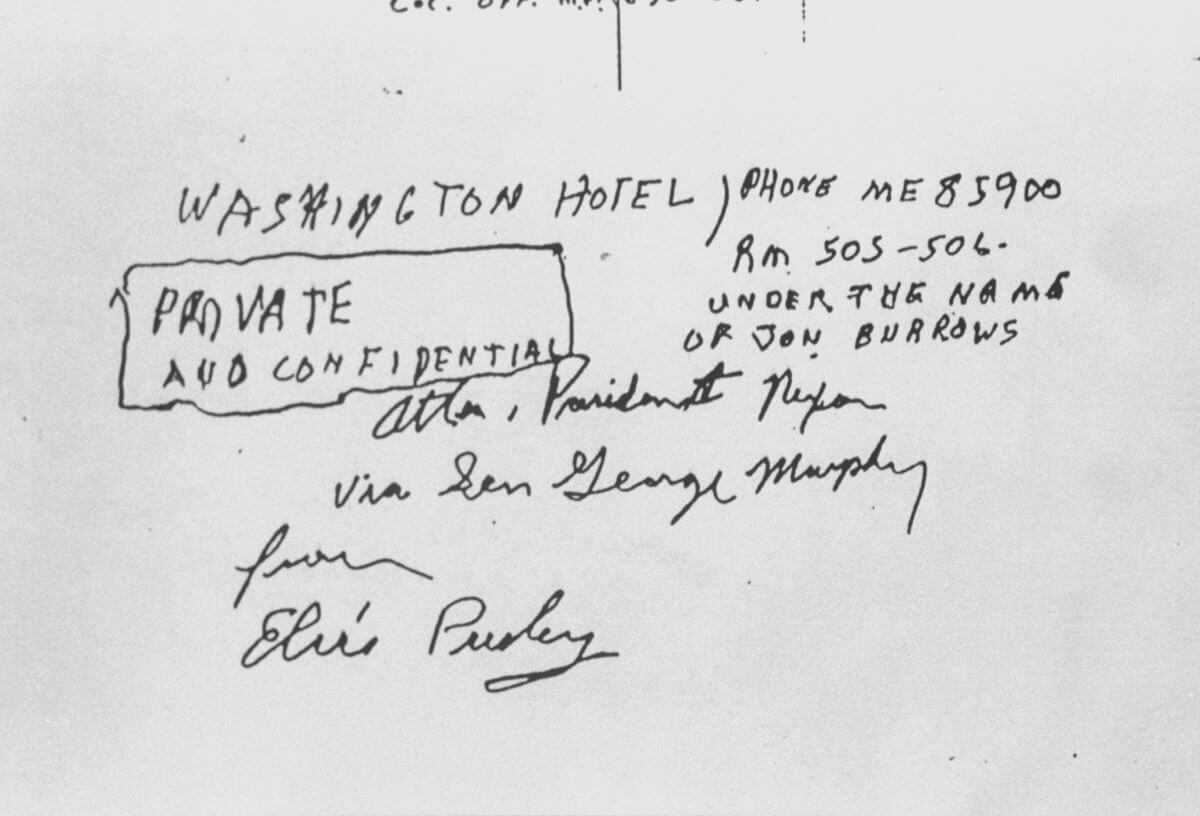 WASHINGTON HOTEL, PHONE ME 85900
RM 505-506.
UNDER THE NAME
OF JON BURROWS
PRIVATE
AND CONFIDENTIAL
Attn. President Nixon
via Sen George Murphy
from
Elvis Presley